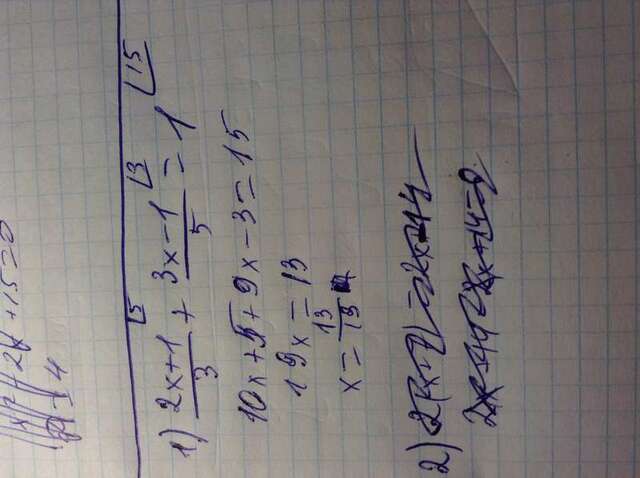 2x + 15 = 0
= 4
1) (2x+1)/3 ⌊5 + (3x-1)/5 ⌊3 = 1 ⌊15
10x + 5 + 9x - 3 = 15
19x = 13
x = 13/19
2)